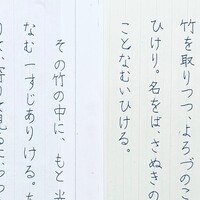 竹を取りつつ、よろづのこ
ひけり。名をば、さぬきの
ことなむいひける。
その竹の中に、もと光
なむ一すじありける。